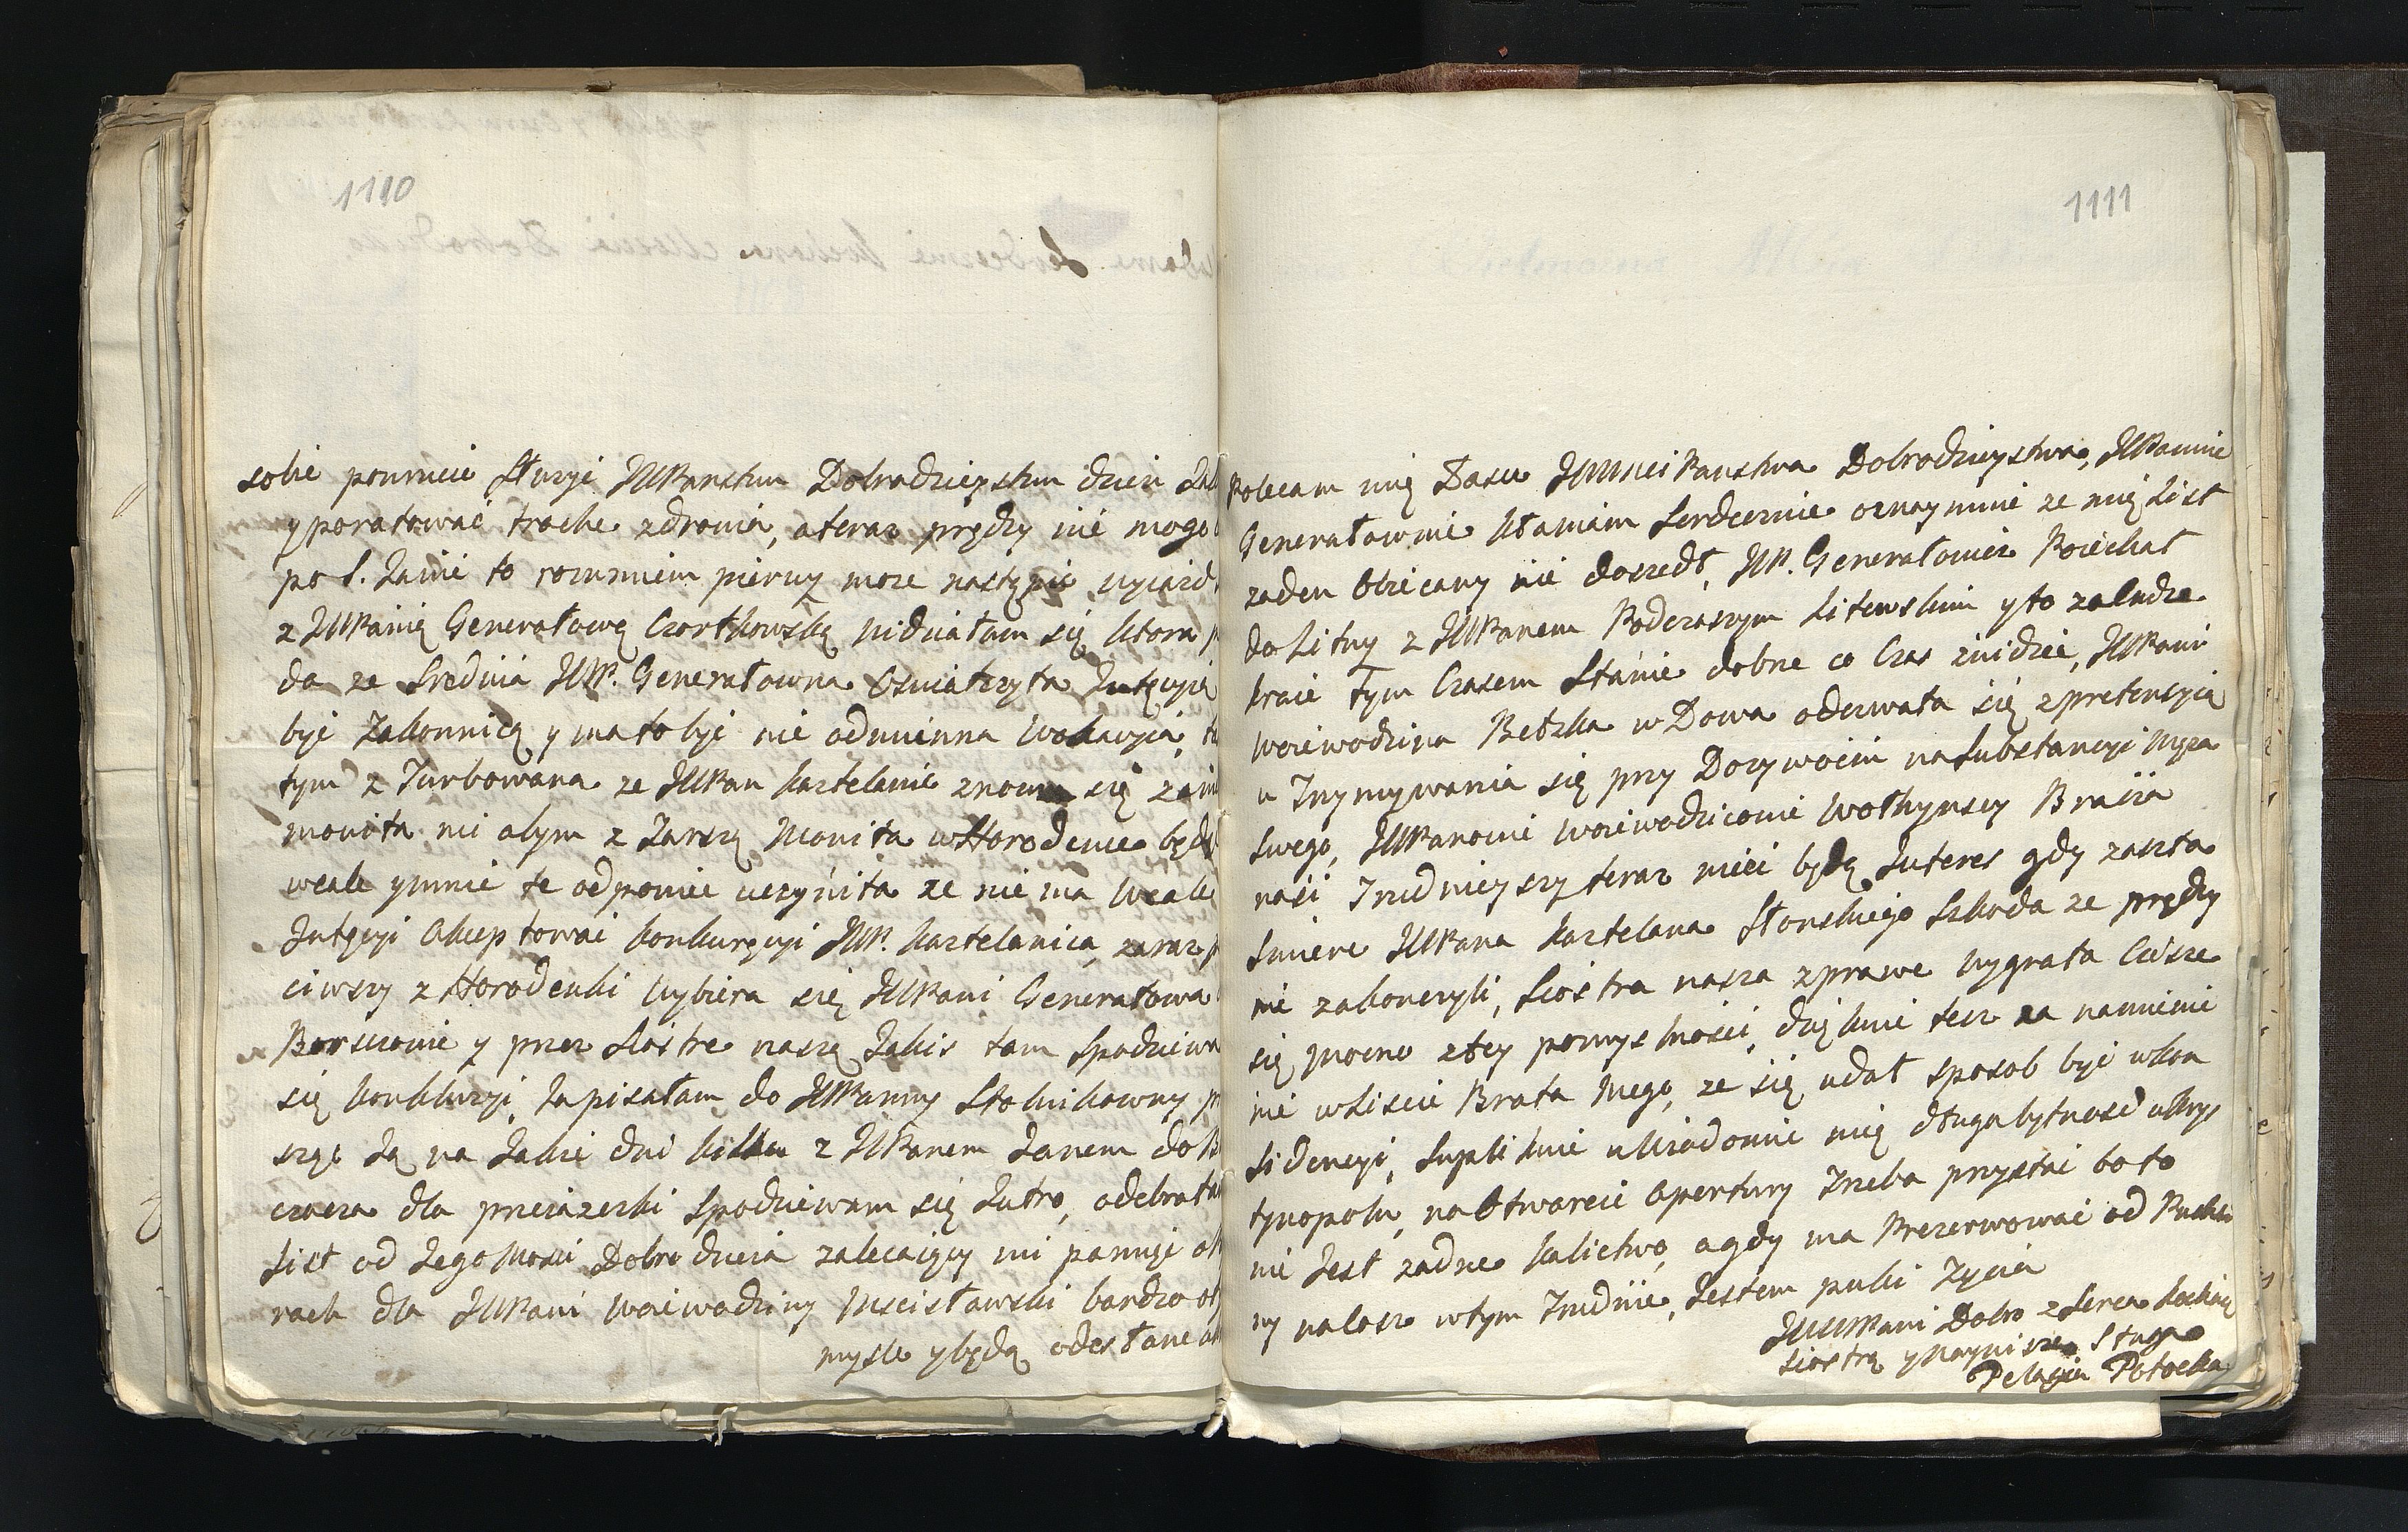 1110
sobie pomnicie służyć JWPaństwu Dobrodzieystwu dzień
y poratować troche zdrowia, a teraz prędzy nie mogę
po S. Janie to rozumiem pierwy moze nastąpić wyiazd
z JWPanią Generałową Czortkowską widziałam się ktora
da ze srednia JWP. Generałowna oswiatczyła Intęcyią
być Zakonnicą y ma to być nie odmienna Wokacyia,
tym z Turbowana ze JWPan Kasztelanic znowu się
mowiła mi abym z Starszą Mowiła w Horodence
wcale ymnie te odpowie uczyniła ze nie ma Wcale
Intęcyi Akceptować konkuręcyi JWP. Kasztelanica, zaraz
ciwszy z Horodenki Wybiera się JWPani Generałowa
y przez Siostre naszą Jakis tam
się konkluzyi, Ja pisałam do JWPanny Stolnikowny
szge Ją na Jakie dni kilka z JWPanem Janem do
czacza dla przeiazczki Spodziewam się Jutro, odebrałam
List od Jego Mosci Dobrodzieia zalecaiący mi pamięć
rach dla JWPani Woiewodziny Mscisławski bardzo
mysle y będą odesłane
1111
Polecam mię Łasce JWWMci Panstwa Dobrodzieystwa, JWPannie
Generałownie kłaniam Serdecznie oznaymuie ze mię List
zaden Obiecany nie doszedł, JWP. Generałowicz Poiechał
do Litwy z JWPanem Podczaszym Litewskim y to za ludze
kraie Tym Czasem Stanie dobre co Czas znidzie, JWPani
Woiewodzina Bełzka w Dowa odezwała się z pretensyią
u Trzymywania się przy Dozywociu na Substancyi Męza
Swego, JWPanowie Woiewodzicowie Wołhynscy Bracia
nasi Trudnieyszy teraz mieć będą Interes gdy zaszła
Smierc JWPana Kasztelana Słonskiego Szkoda ze prędzy
nie zakonczyli, Siostra nasza z prawe Wygrała Ciesze
się mocno z tey pomyslnosci, dziękuie tesz za namienie
nie w Liscie Brata Mego, ze się udał sposob być w kon
Sidencyi, Suplikuie uWiadomic mię długa bytnosc w Krys
tynopolu, na Otwarcie Apertury Trzeba przystać bo to
nie Jest zadne kalictwo, a gdy ma Prezerwować od
ny nalasz w tym Trudnie, Jestem puki Zycia
JWWMPani Dobro z Serca kochaią
Siostrą y Nayniszą Sługą
Pelagia Potocka